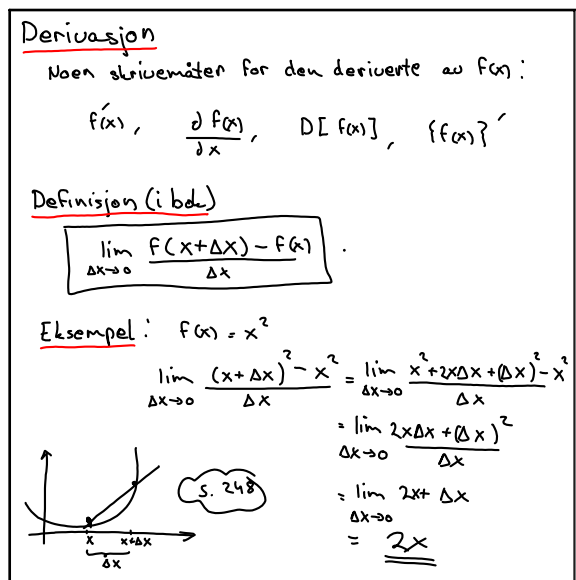 Derivasjon
Noen skrivemåter for den deriverte av f(x):
f'(x), ∂f(x)/∂x, D[f(x)], {f(x)}'
Definisjon (i bok)
lim Δx→0 (f(x+Δx) - f(x))/Δx.
Eksempel: f(x) = x²
lim Δx→0 ((x+Δx)² - x²)/Δx = lim Δx→0 (x²+2xΔx+(Δx)²-x²)/Δx
= lim Δx→0 (2xΔx+(Δx)²)/Δx
= lim Δx→0 2x+Δx
= 2x
s. 248
x x+Δx
Δx